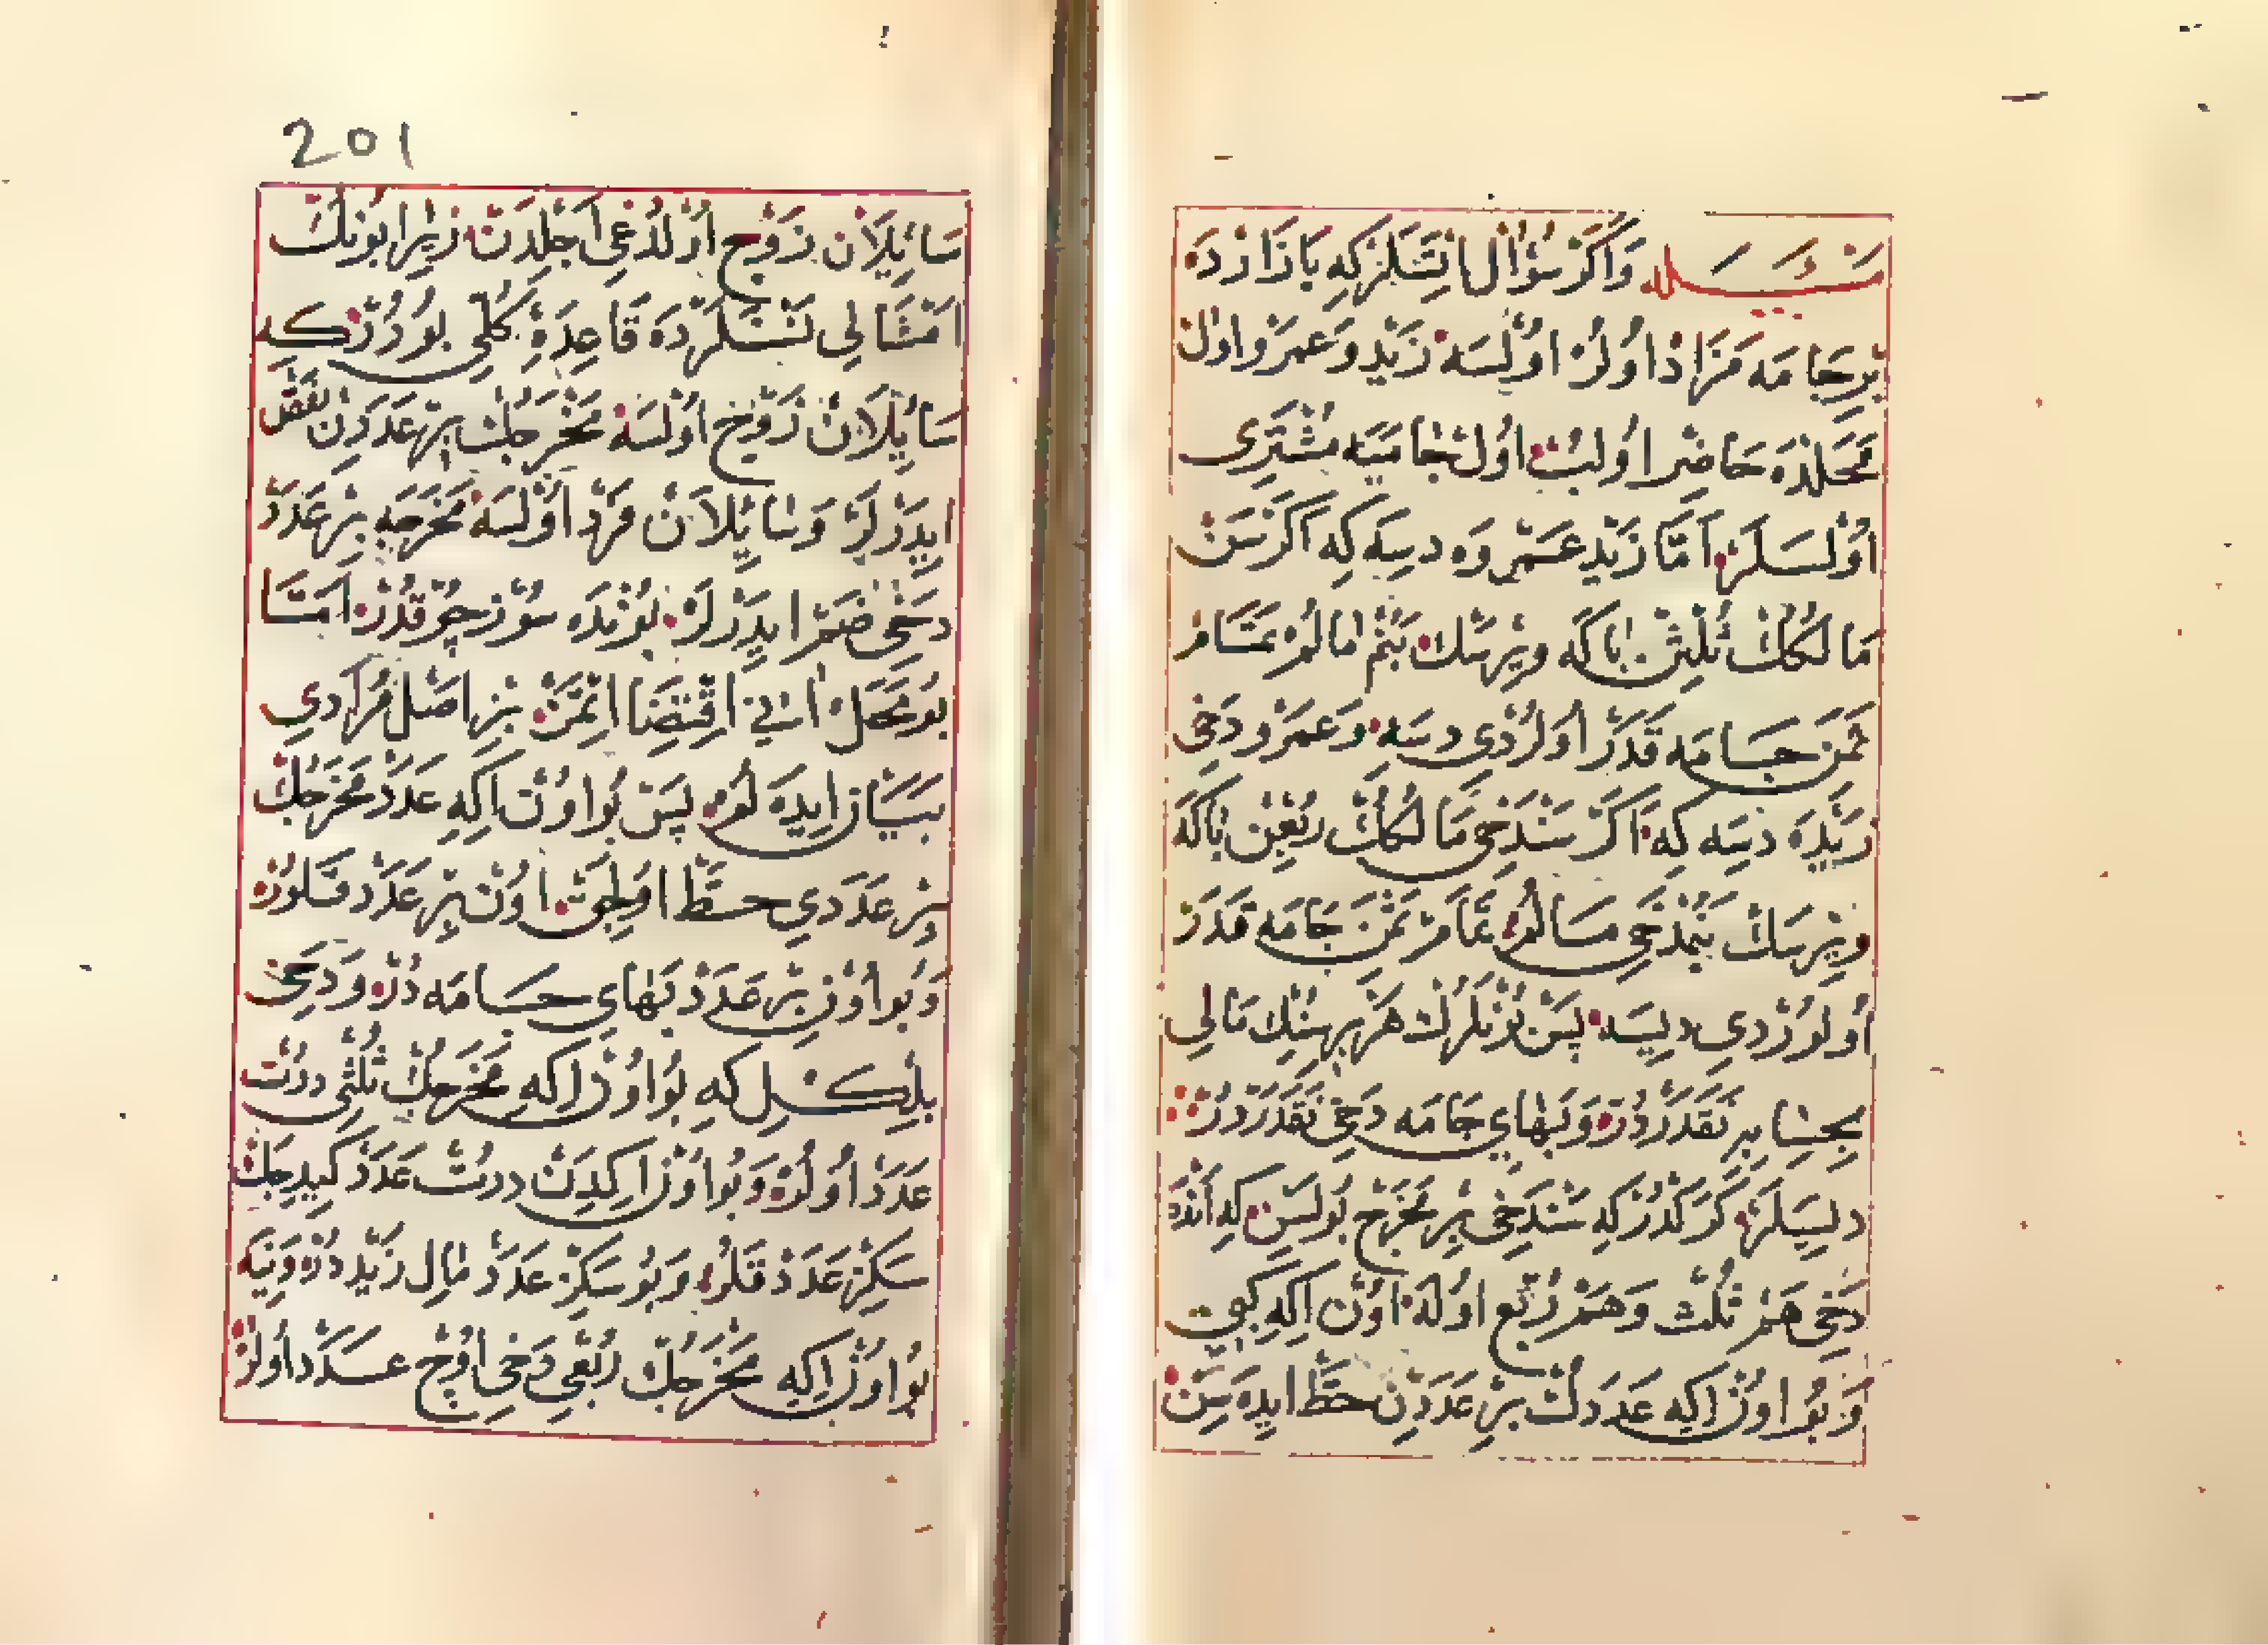 مَسْئَلَه وَاَكَرْ سُؤَال اِتْسَلَرْ كِه بَازَارْدَه
بِرْ جَامَه مَزَادْ اُولُرْ اُولْسَه زَيْد وَعَمْرو اُولْ
مَحَلْدَه حَاضِرْ اُولُبْ اُولْ جَامَيَه مُشْتَرِى
اُولْسَلَرْ اَمَّا زَيْد عَمْروَه دِسَه كِه اَكَرْ سَنْ
مَالُكُكْ ثُلْثِنْ بَاكَه وِيرْسَكْ بَنُمْ مَالُمْ تَمَامْ
ثَمَن جَامَه قَدَرْ اُولُرْدِى دِسَه وَعَمْرو دَخِى
زَيْدَه دِسَه كِه اَكَرْ سَنْدَخِى مَالُكُكْ رُبْعِنْ بَاكَه
وِيرْسَكْ بَنُمْدَخِى مَالُمْ تَمَامْ ثَمَن جَامَه قَدَرْ
اُولُورْدِى دِيسَه پَسْ بُونْلَرُكْ هَرْ بِرِيسِنُكْ مَالِى
بِحِسَابِ نَقَدَرْدُرْ وَبَهَاىِ جَامَه دَخِى نَقَدَرْدُرْ
دِيسَلَرْ كَرَكْدُرْ كِه سَنْدَخِى بِرْ مَخْرَجْ بُولَسِنْ كِه اَنْدَه
دَخِى هَمْ ثُلْث وَهَمْ رُبْع اُولَه اُونْ اِكِى كِبِى
وَبُو اُونْ اِكِى عَدَدُكْ بِرْ عَدَدِنْ حَطّ ايدَه سِنْ
201
سَائِلَانْ زَوْج اُولْدُغِى اَجْلِدَنْ زِيرَا بُونُكْ
اَمْثَالِى نَسْنَلَرْدَه قَاعِدَۀِ كُلِّى بُودُرْكِه
سَائِلَانْ زَوْج اُولْسَه مَخْرَجُكْ بِرْ عَدَدِنْ نَقْل
ايدَرْلَرْ وَسَائِلَانْ فَرْد اُولْسَه مَخْرَجَه بِرْ عَدَدْ
دَخِى ضَمّ ايدَرْلَرْ بُونْدَه سُوزْ چُوقْدُرْ اَمَّا
بُو مَحَلْ اَنِى اِقْتِضَا اِتْمَزْ بِزْ اَصْل مُرَادِى
بَيَانْ ايدَه لُمْ پَسْ بُو اُونْ اِكِى عَدَدْ مَخْرَجُكْ
بِرْ عَدَدِى حَطّ اُولِجَقْ اُونْ بِرْ عَدَدْ قَلُورْ
وَبُو اُونْ بِرْ عَدَدْ بَهَاىِ جَامَه دُرْ وَدَخِى
بِلْكِلْ كِه بُو اُونْ اِكِى مَخْرَجُكْ ثُلْثِى دُرْتْ
عَدَدْ اُولُرْ وَبُو اُونْ اِكِدَنْ دُرْتْ عَدَدْ كِيدِجَكْ
سَكِزْ عَدَدْ قَلُرْ وَبُو سَكِزْ عَدَدْ مَالِ زَيْد دُرْ وَيِنَه
بُو اُونْ اِكِى مَخْرَجُكْ رُبْعِى دَخِى اُوچْ عَدَدْ اُولُرْ